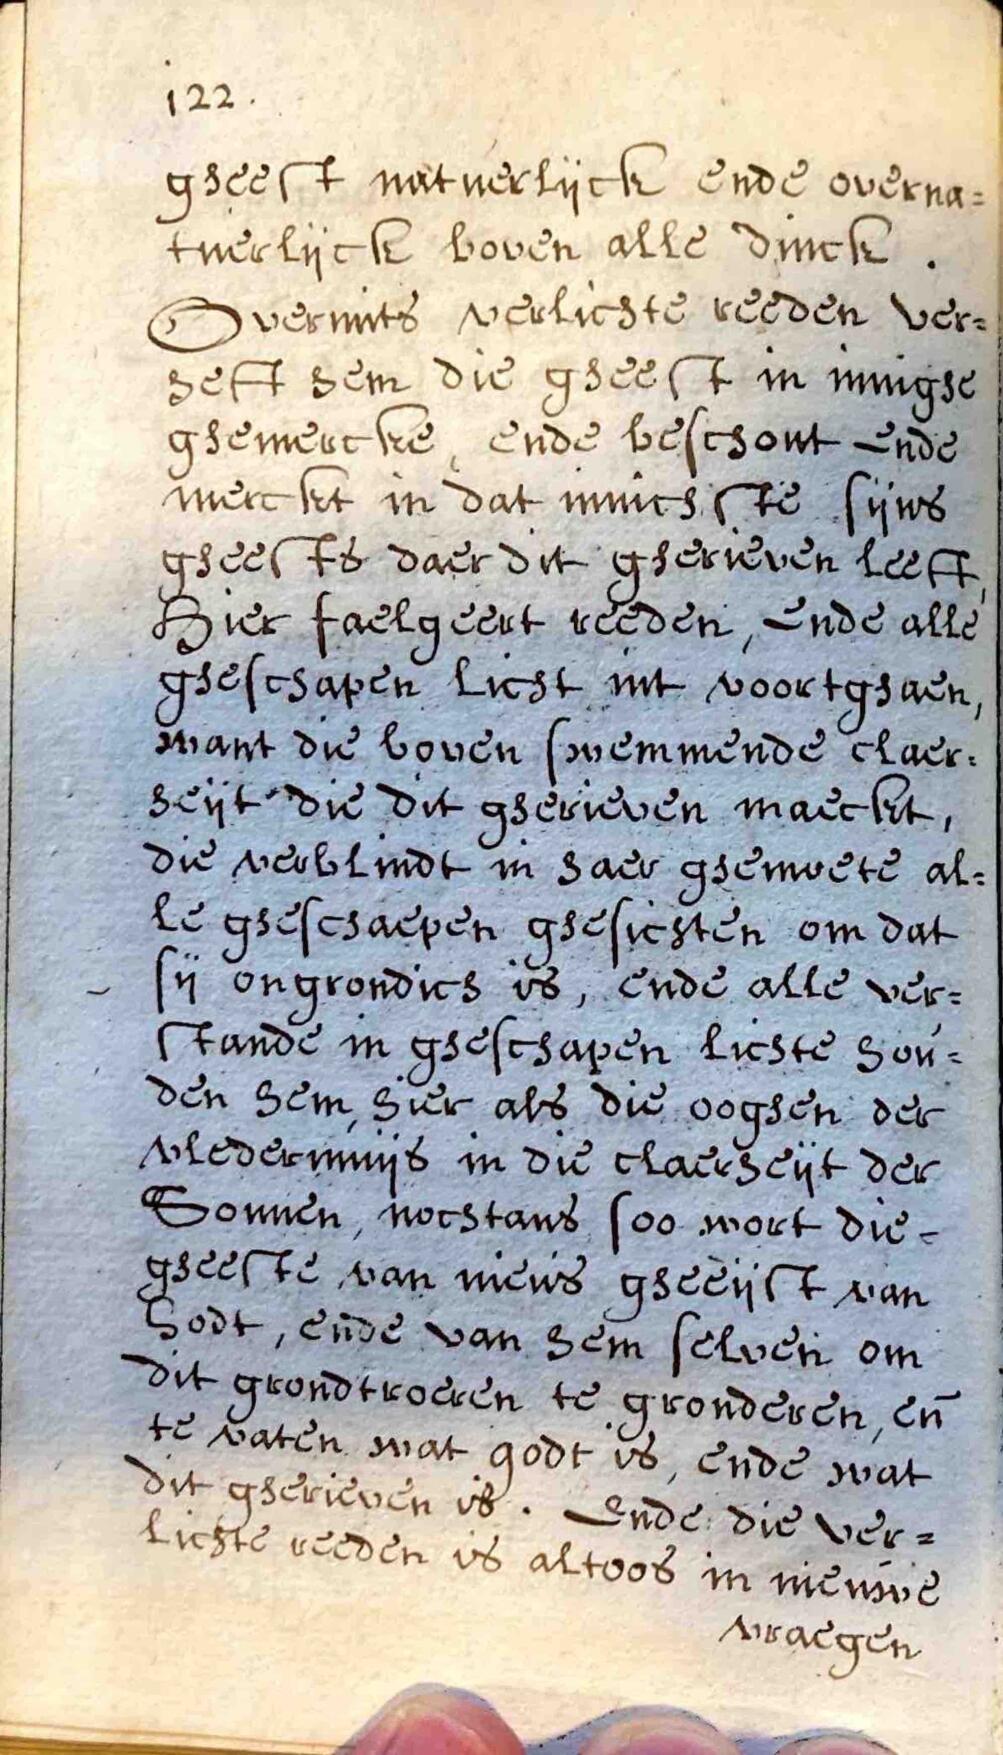 122.
gheest natuerlijck ende overna=
tuerlijck boven alle dinck .
Overmits verlichte reeden ver=
heft hem die gheest in innighe
ghemercke, ende beschout ende
merckt in dat innichste sijns
gheests daer dit gherieven leeft,
Hier faelgeert reeden, ende alle
gheschapen licht int voortghaen,
want die boven swemmende claer=
heijt die dit gherieven maeckt,
die verblindt in haer ghemoete al=
le gheschaepen ghesichten om dat
sij ongrondich is, ende alle ver=
stande in gheschapen lichte hou=
den hem, hier als die ooghen der
vledermuijs in die claerheijt der
Sonnen, nochtans soo wort die=
gheeste van nieuws gheeijst van
Godt, ende van hem selven om
dit grondtroeren te gronderen, en̄
te vaten wat godt is, ende wat
dit gherieven is. Ende die ver=
lichte reeden is altoos in nieuwe
vraegen